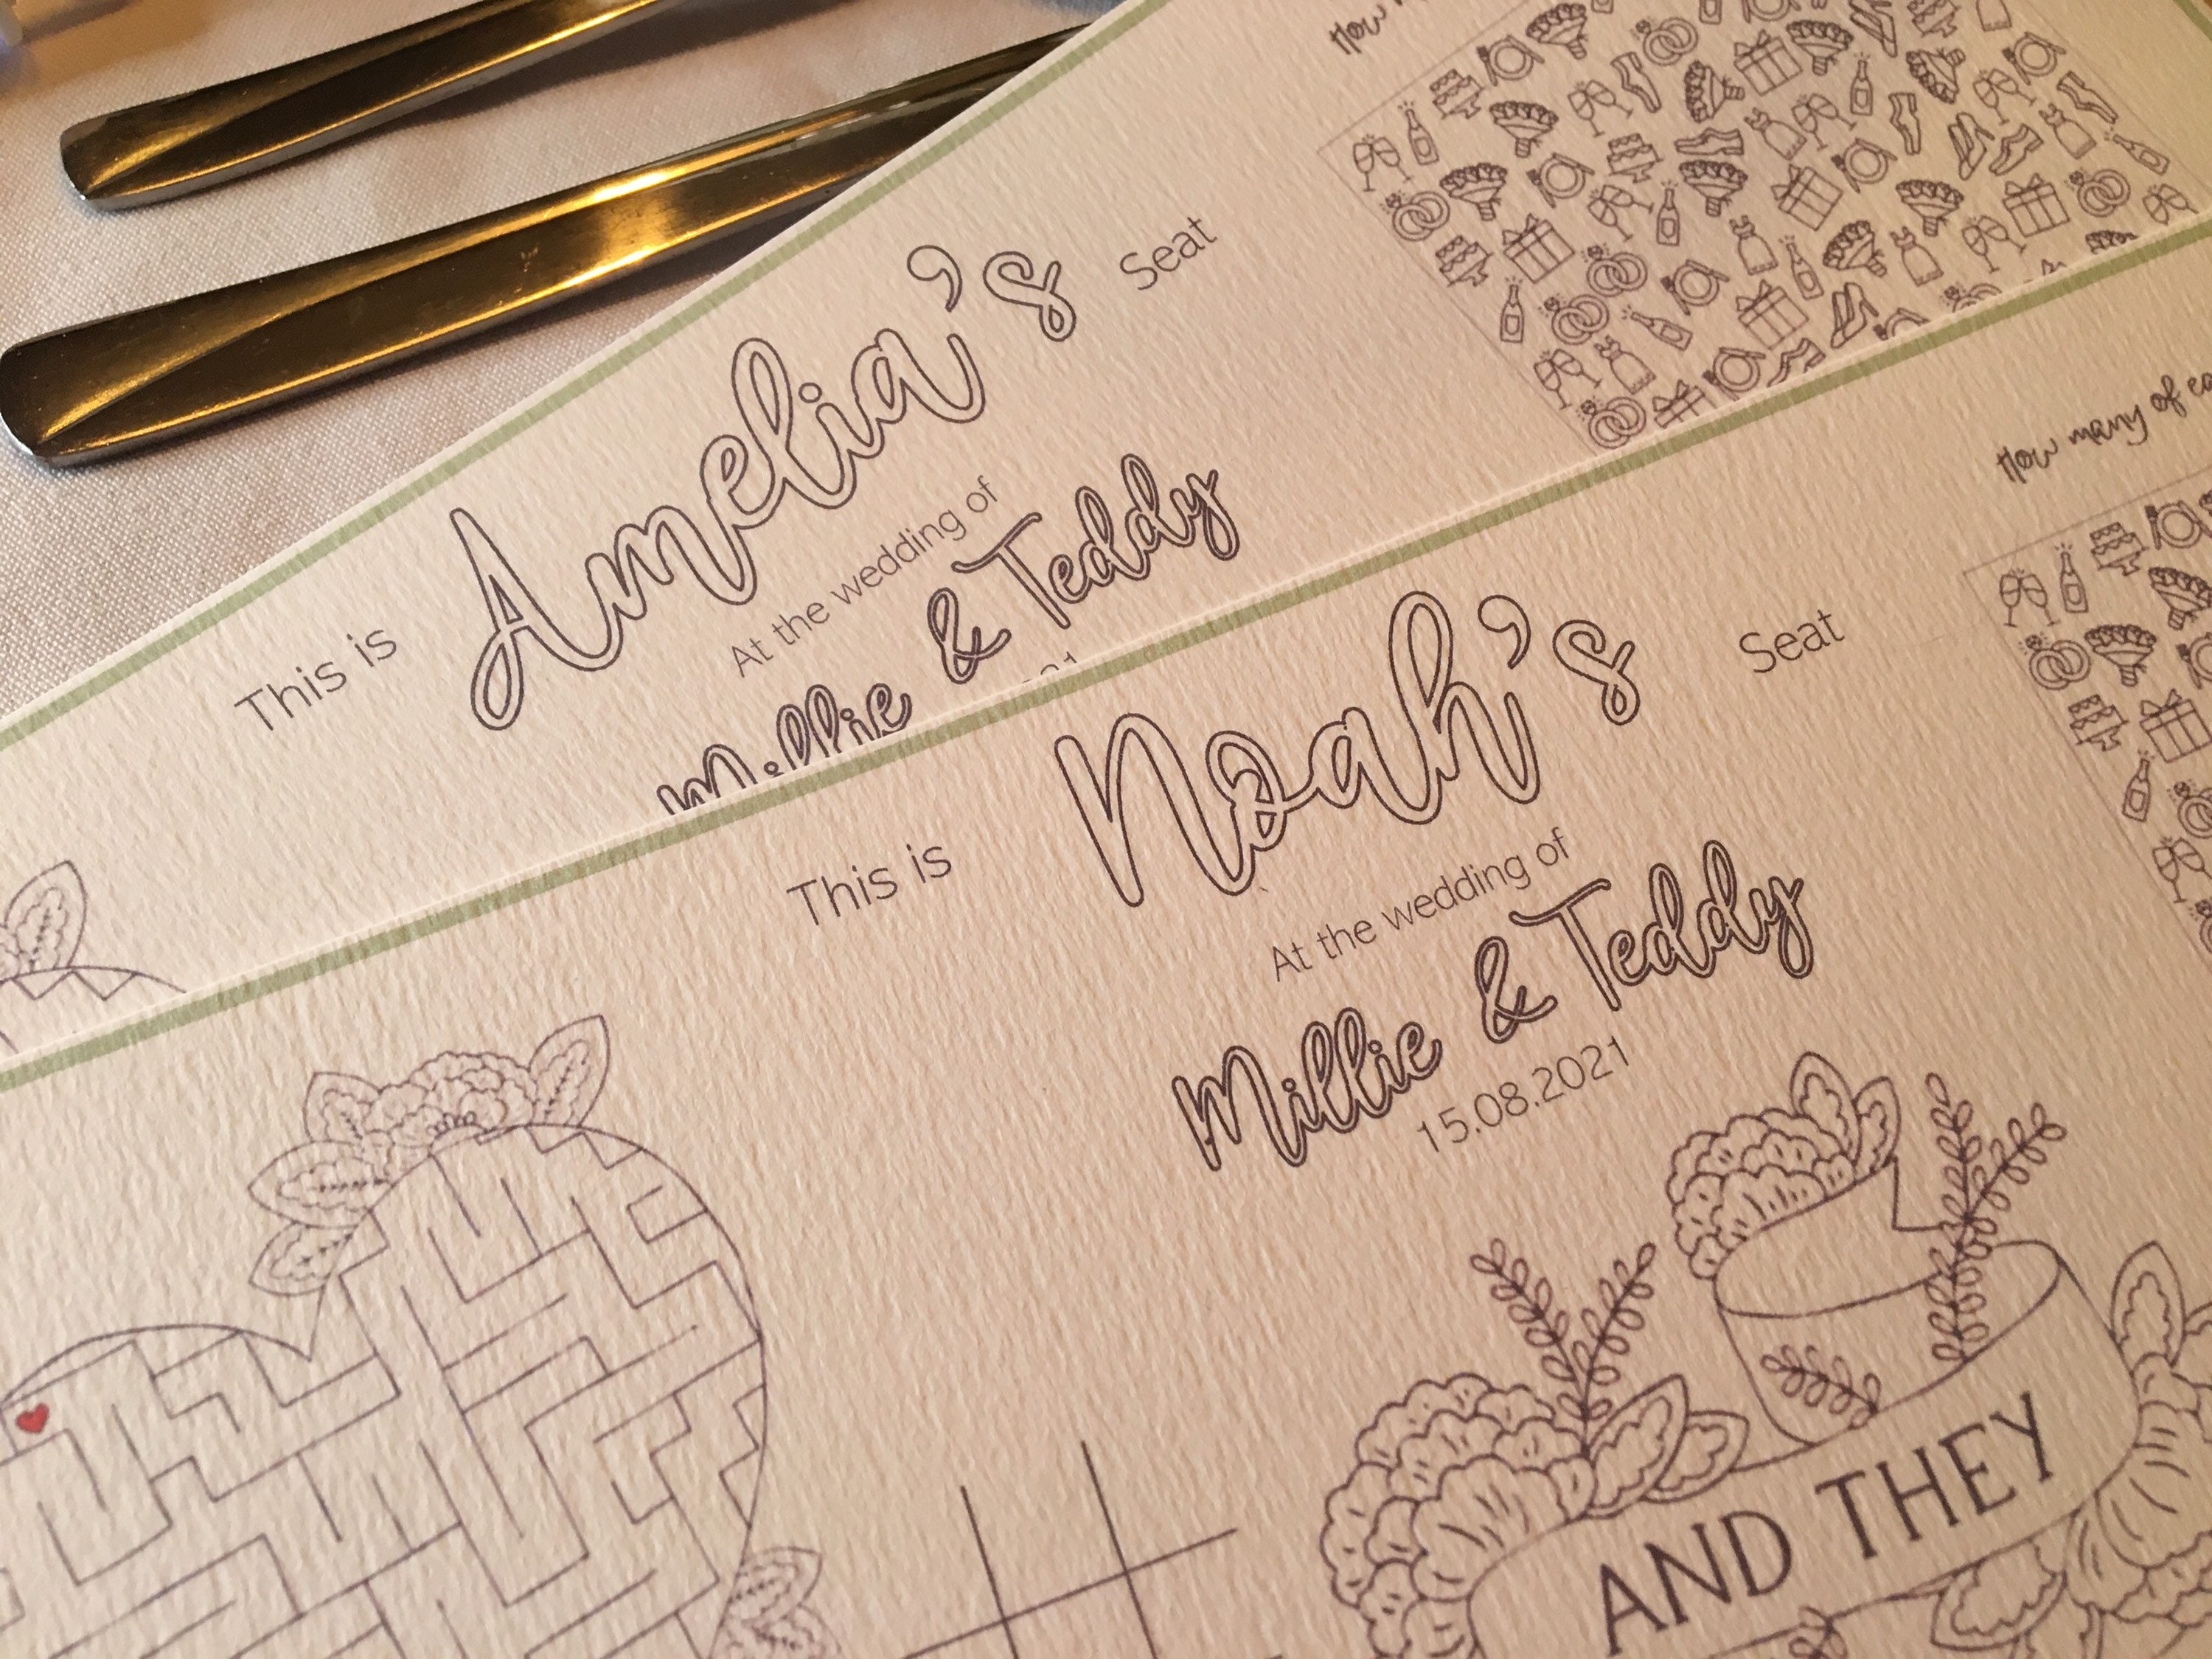 How
This is Amelia's Seat
At the wedding of
Millie & Teddy
How many of
This is Noah's Seat
At the wedding of
Millie & Teddy
15.08.2021
AND THEY